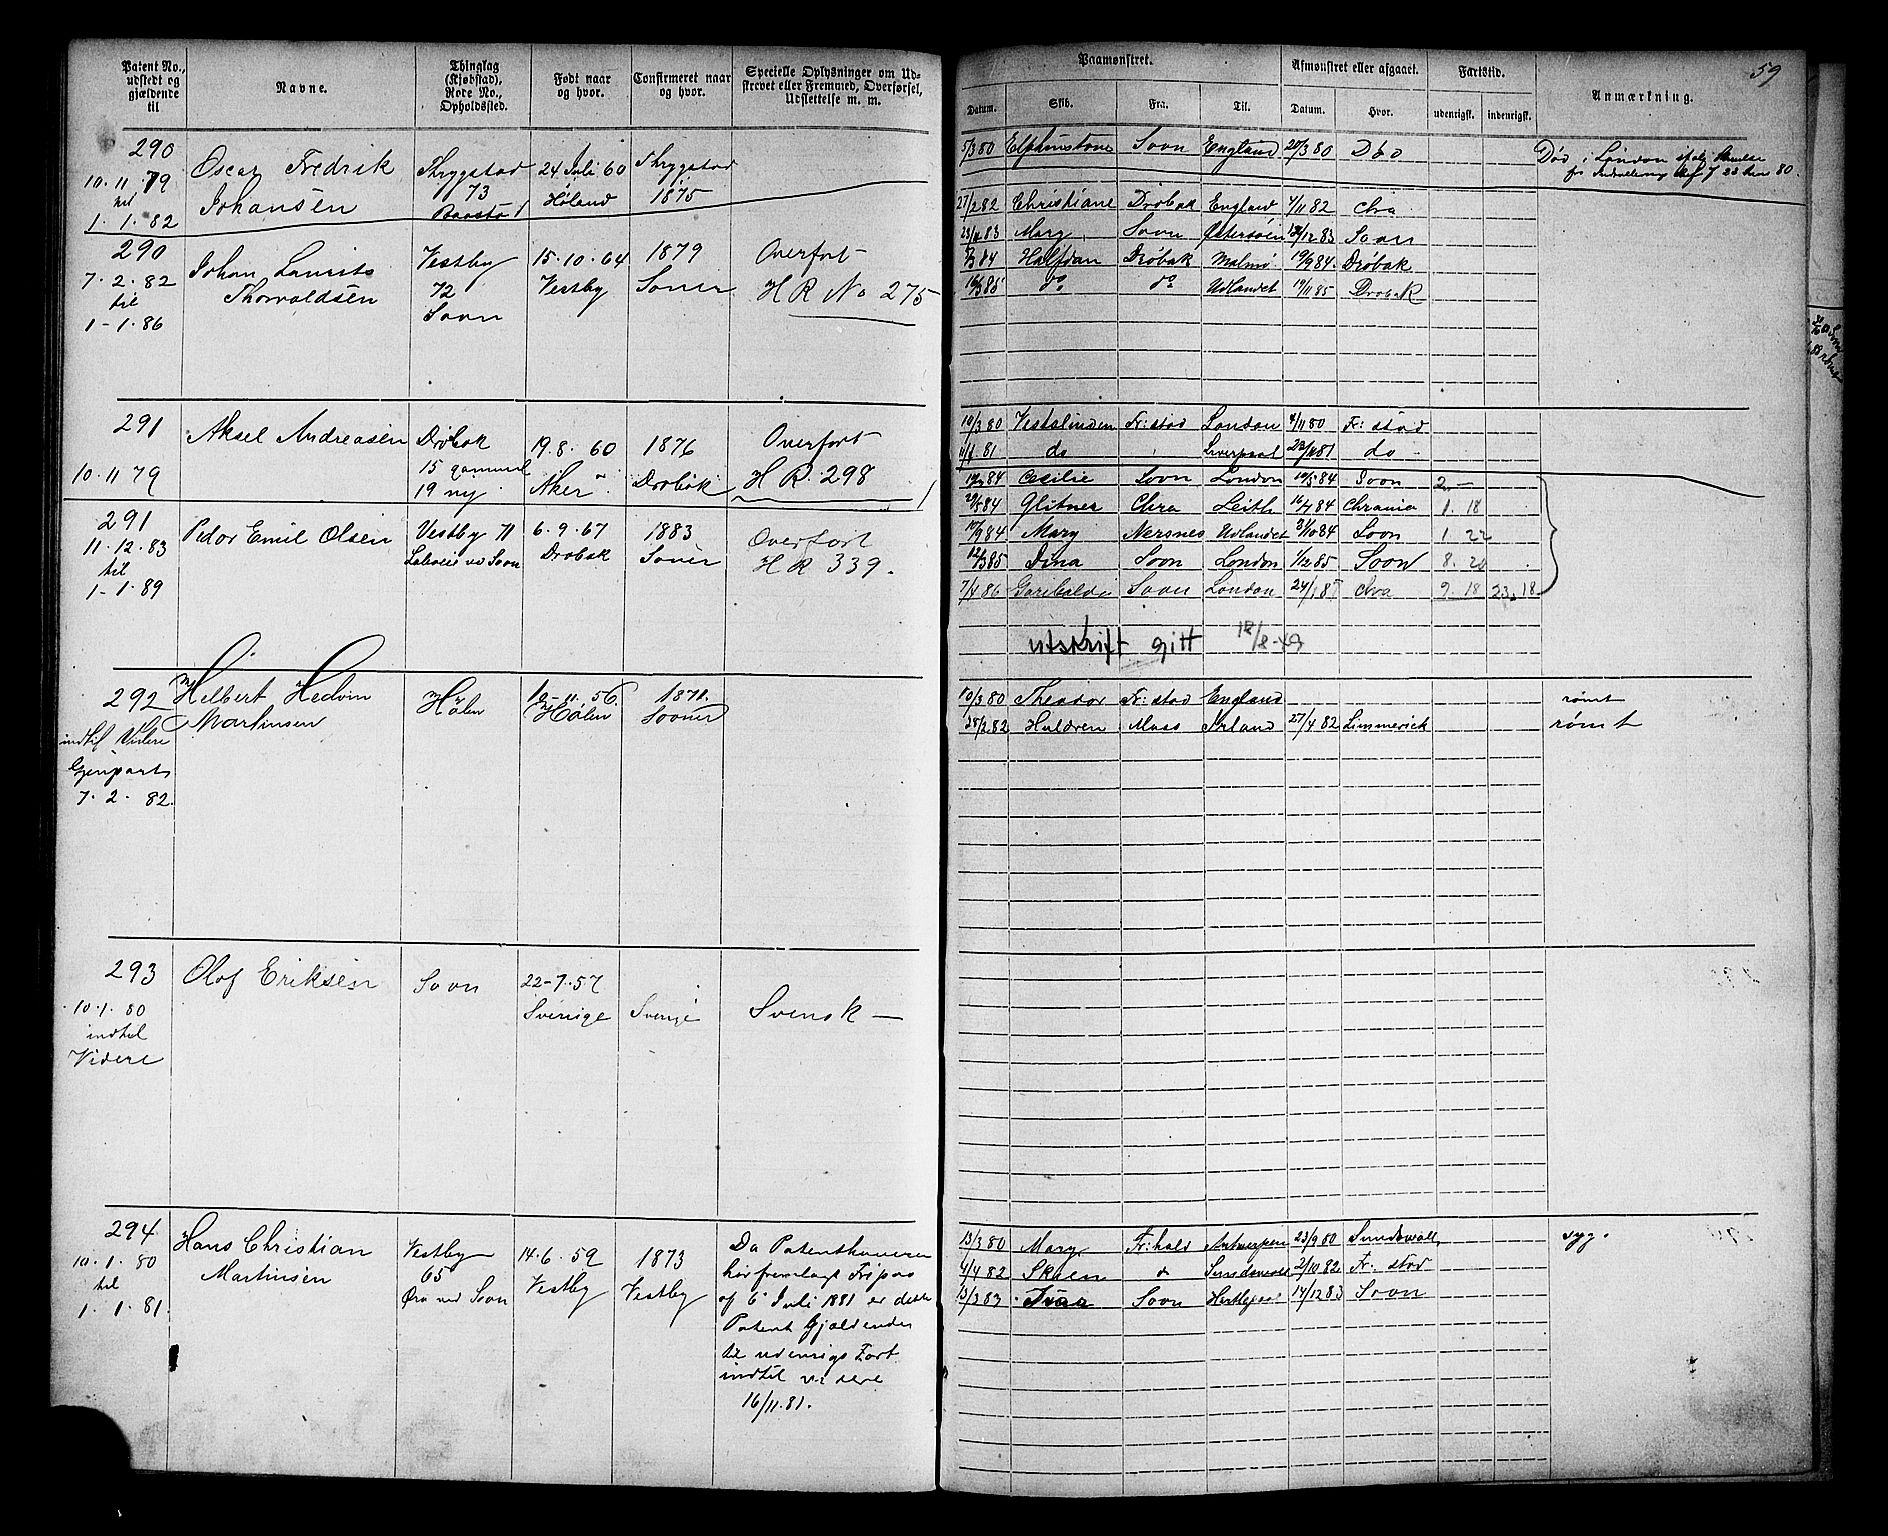 Patent No., udstedt og gjældende til
Navne.
Thinglag (Kjøbstad), Rode No., Opholdssted.
Født naar og hvor.
Confirmeret naar og hvor.
Specielle Oplysninger om Udskrevet eller Fremmed, Overførsel, Udslettelse m. m.
290
10. 11 79
til
1. 1. 82
Oscar Fredrik
Johansen
Thrygstad
73
24 Juli 60
Høland
Thrygstad
1875
290
7. 2. 82
til
1-1. 86
Johan Laurits
Thorvaldsen
Vestby
72
Soon
15. 10. 64
Vestby
1879
Soner
Overført
H R No 275
291
10. 11 79
Aksel Andreasen
Drøbak
15 gammel
19 ny
19. 8. 60
Aker
1876
Drøbak
Overført
H R. 298
291
11. 12. 83
til
1-1. 89
Peder Emil Olsen
Vestby 71
Labeie ved Soon
6. 9. 67
Drøbak
1883
Soner
Overført
H R 339.
292
indtil Videre
Gjenpart
7. 2. 82.
Helbert Hedvin
Martinsen
Hølen
19-11. 56.
Hølen
1871.
Sooner
293
10. 1. 80
indtil
Videre
Olof Eriksen
Soon
22-7. 57
Sverige
Sverige
Svensk —
294
10. 1. 80
til
1. 1. 81.
Hans Christian
Martinsen
Vestby
65
Øra ved Soon
14. 6. 59
Vestby
1873
Vestby
Da Patenthaveren
har fremlagt Fripas
af 6 Juli 1881 er dette
Patent Gjældende
til udenrigs Fart
indtil videre
16/11. 81.
59
Paamønstret.
Afmønstret eller afgaaet.
Fartstid.
Anmærkning.
Datum.
Skib.
Fra.
Til.
Datum.
Hvor.
udenrigsk.
indenrigsk.
5/3 80 Elphinstone Soon England 20/3 80 Død
Død i London
27/2 82 Christiane Drøbak England 7/11 82 Chra
Mary Soon Østersøen 12/12 83 Soon
Halfdan Drøbak Malmø 19/9 84. Drøbak
do do Udlandet 19/11 85 Drøbak
19/3 80 Vestalinden Fr: stad London 4/11 80 Fr: stad
do Liverpool do
Cecilie Soon London 19/5 84 Soon 2 —
29/5 84 Glitner Chra Leith 16/7 84 Chrania 1. 18
10/9 84 Mary Nersnes Udlandet 31/10 84 Soon 1 22
12/3 85 Dina Soon London 1/12 85 Soon 8. 20
7/4 86 Garibaldi Soon London Chra 9. 18 23. 18
utskrift gitt
19/3 80 Theodor Fr: stad England
rømt
28/2 82 Huldren Moss Irland 27/4 82 Limmerick
rømt
13/3 80 Mary Fr: hald Antwerpen 23/9 80 Sundsvall
syg.
4/4 82 Skien Sundsvall 2/10 82 Fr. stad
13/3 83 Soon Hartlepool 14/12 83 Soon